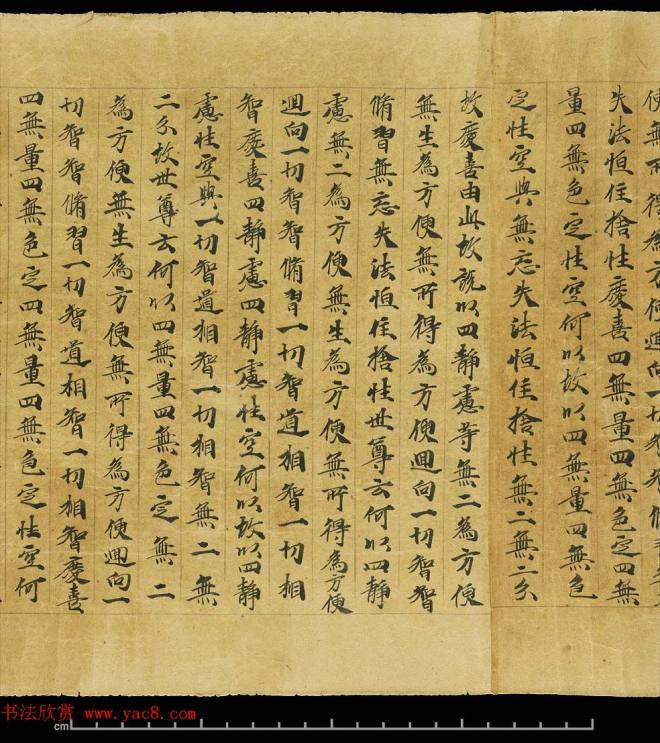 便無所得為方便迴向一切智智脩
失法恒住捨性慶喜四無量四無色定四無
量四無色定性空何以故以四無量四無色
定性空與無忘失法恒住捨性無二無二分
故慶喜由此故說以四靜慮等無二為方便
無生為方便無所得為方便迴向一切智智
脩習無忘失法恒住捨性世尊云何以四靜
慮無二為方便無生為方便無所得為方便
迴向一切智智脩習一切智道相智一切相
智慶喜四靜慮四靜慮性空何以故以四靜
慮性空與一切智道相智一切相智無二無
二分故世尊云何以四無量四無色定無二
為方便無生為方便無所得為方便迴向一
切智智脩習一切智道相智一切相智慶喜
四無量四無色定四無量四無色定性空何
书法欣赏 www.yac8.com
cm